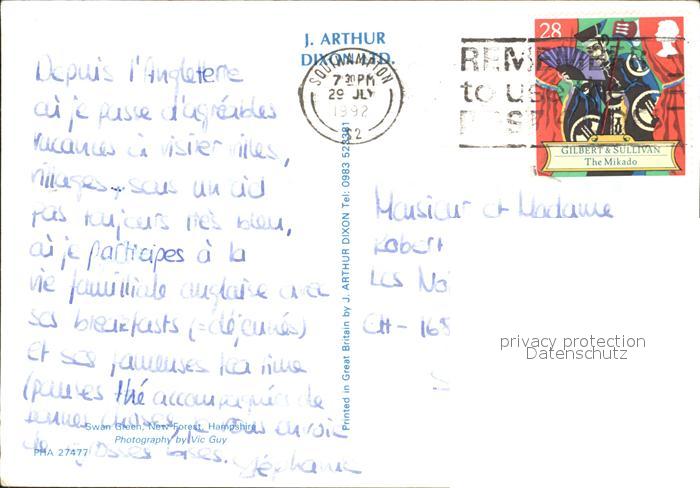 J. ARTHUR
DIXON LTD.
SOUTHAMPTON
7 30 PM
29 JLY
1992
REMEMBER
to use
28
GILBERT & SULLIVAN
The Mikado
Depuis l'Angleterre
où je passe d'agréables
vacances à visiter villes,
villages... sous un ciel
pas toujours très bleu,
où je participes à la
vie familliale anglaise avec
ses breakfasts (= déjeunés)
et ses fameuses tea time
(pauses thé accompagnées de
bonnes choses, je vous envoie
de grosses bises. Stéphanie
Swan Green, New Forest, Hampshire
Photography by Vic Guy
PHA 27477
Printed in Great Britain by J. ARTHUR DIXON Tel: 0983 523381
Monsieur et Madame
Robert
Les
CH - 168
privacy protection
Datenschutz